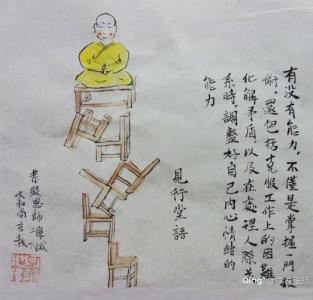 有没有能力，不僅是掌握一門
術。還包括克服工作上的困難
化解矛盾，以及在處理人際关
系時，調整好自己内心情绪的
能力
見行堂語
恩師
大和尚言教
Qing